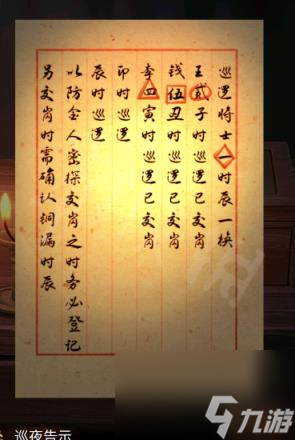 巡逻将士一时辰一换
王贰子时巡逻已交肖
钱伍丑时巡逻已交肖
李四寅时巡逻已交肖
卯时巡逻
辰时巡逻
以防金人密探交肖之时务必登记
另交肖时需确认铜漏时辰
巡夜告示
九游